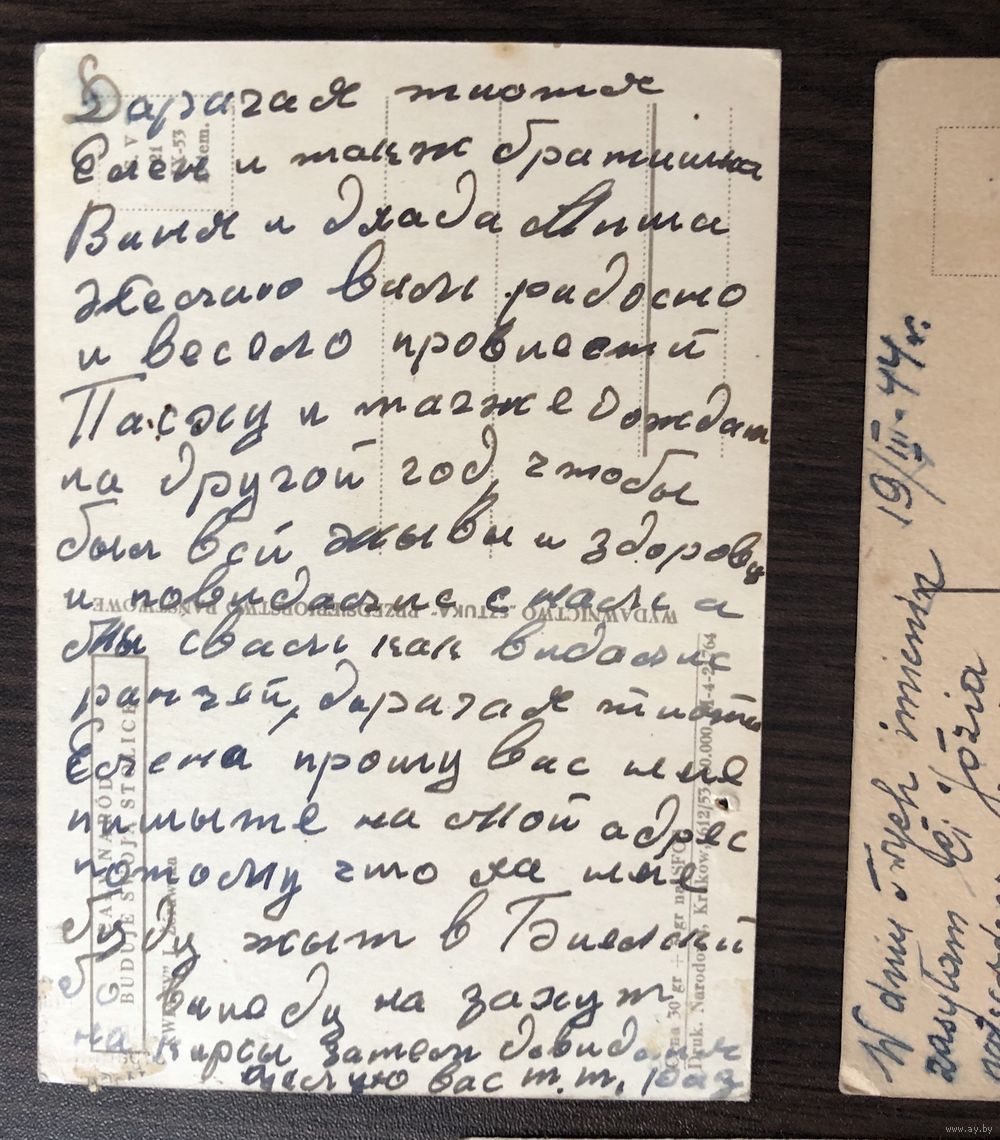 Дарагая тиотя
Елен и такж братишка
Ваня и дяада Миша
Желаю вам радосно
и весело провиестй
Пасху и также дождат
на другой год, чтобы
был всй жывы и здоровы
и повидалис с нами а
мы свами как видалис
раньчей, дарагая тиотя
Елена прошу вас мне
пишыте на мой адрес
потому что на мне
Буду жыт в
на курсы затем довидания
целую вас т. т. раз
WYDAWNICTWO „SZTUKA" - PRZEDSIĘBIORSTWO PAŃSTWOWE
CAŁY NARÓD
BUDUJE SWOJĄ STOLICĘ
Cena 30 gr + gr na SFOS
Druk. Narodowa, Kraków, 1612/53
19/III-44 r.
W dniu Twych imienin
zasyłam Ci Józia
www.ay.by